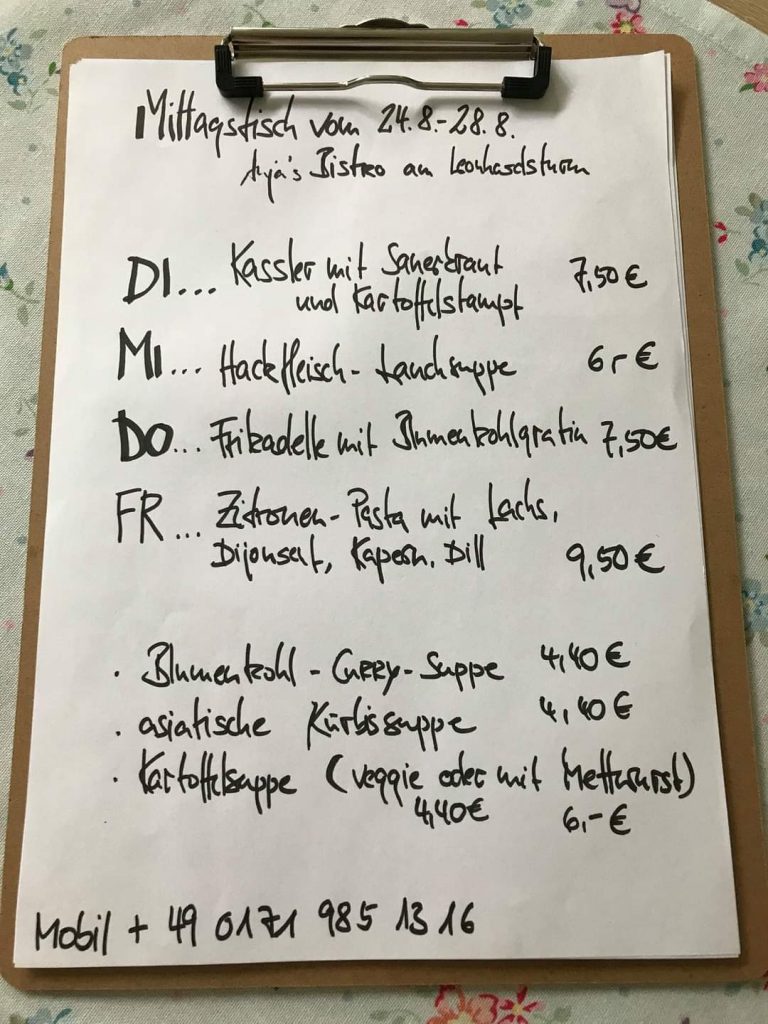 Mittagstisch vom 24.8.-28.8.
Anja's Bistro am Leonhardsturm
DI... Kassler mit Sauerkraut 7,50 €
und Kartoffelstampf
MI... Hackfleisch-Lauchsuppe 6,- €
DO... Frikadelle mit Blumenkohlgratin 7,50€
FR... Zitronen-Pasta mit Lachs,
Dijonsenf, Kapern, Dill 9,50 €
· Blumenkohl-Curry-Suppe 4,40 €
· asiatische Kürbissuppe 4,40 €
· Kartoffelsuppe (veggie oder mit Mettwurst)
4,40€ 6,- €
Mobil + 49 0171 985 13 16